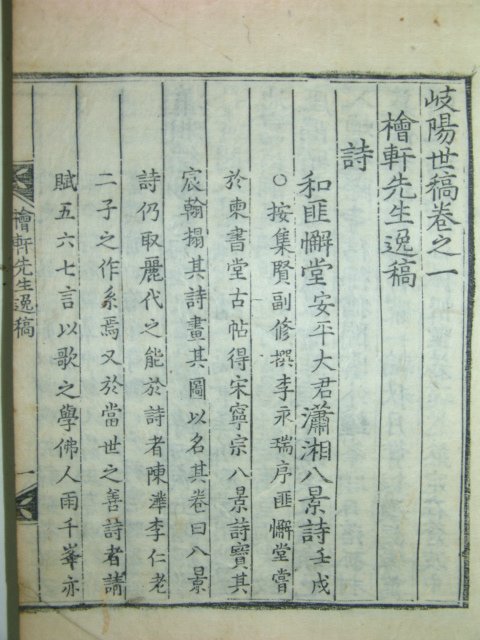 岐陽世稿卷之一
檜軒先生逸稿
詩
和匪懈堂安平大君瀟湘八景詩壬戌
○按集賢副修撰李永瑞序匪懈堂嘗
於東書堂古帖得宋寧宗八景詩寳其
宸翰搨其詩畫其圖以名其卷曰八景
詩仍取麗代之能於詩者陳澕李仁老
二子之作系焉又於當世之善詩者請
賦五六七言以歌之學佛人雨千峯亦
檜軒先生逸稿
一